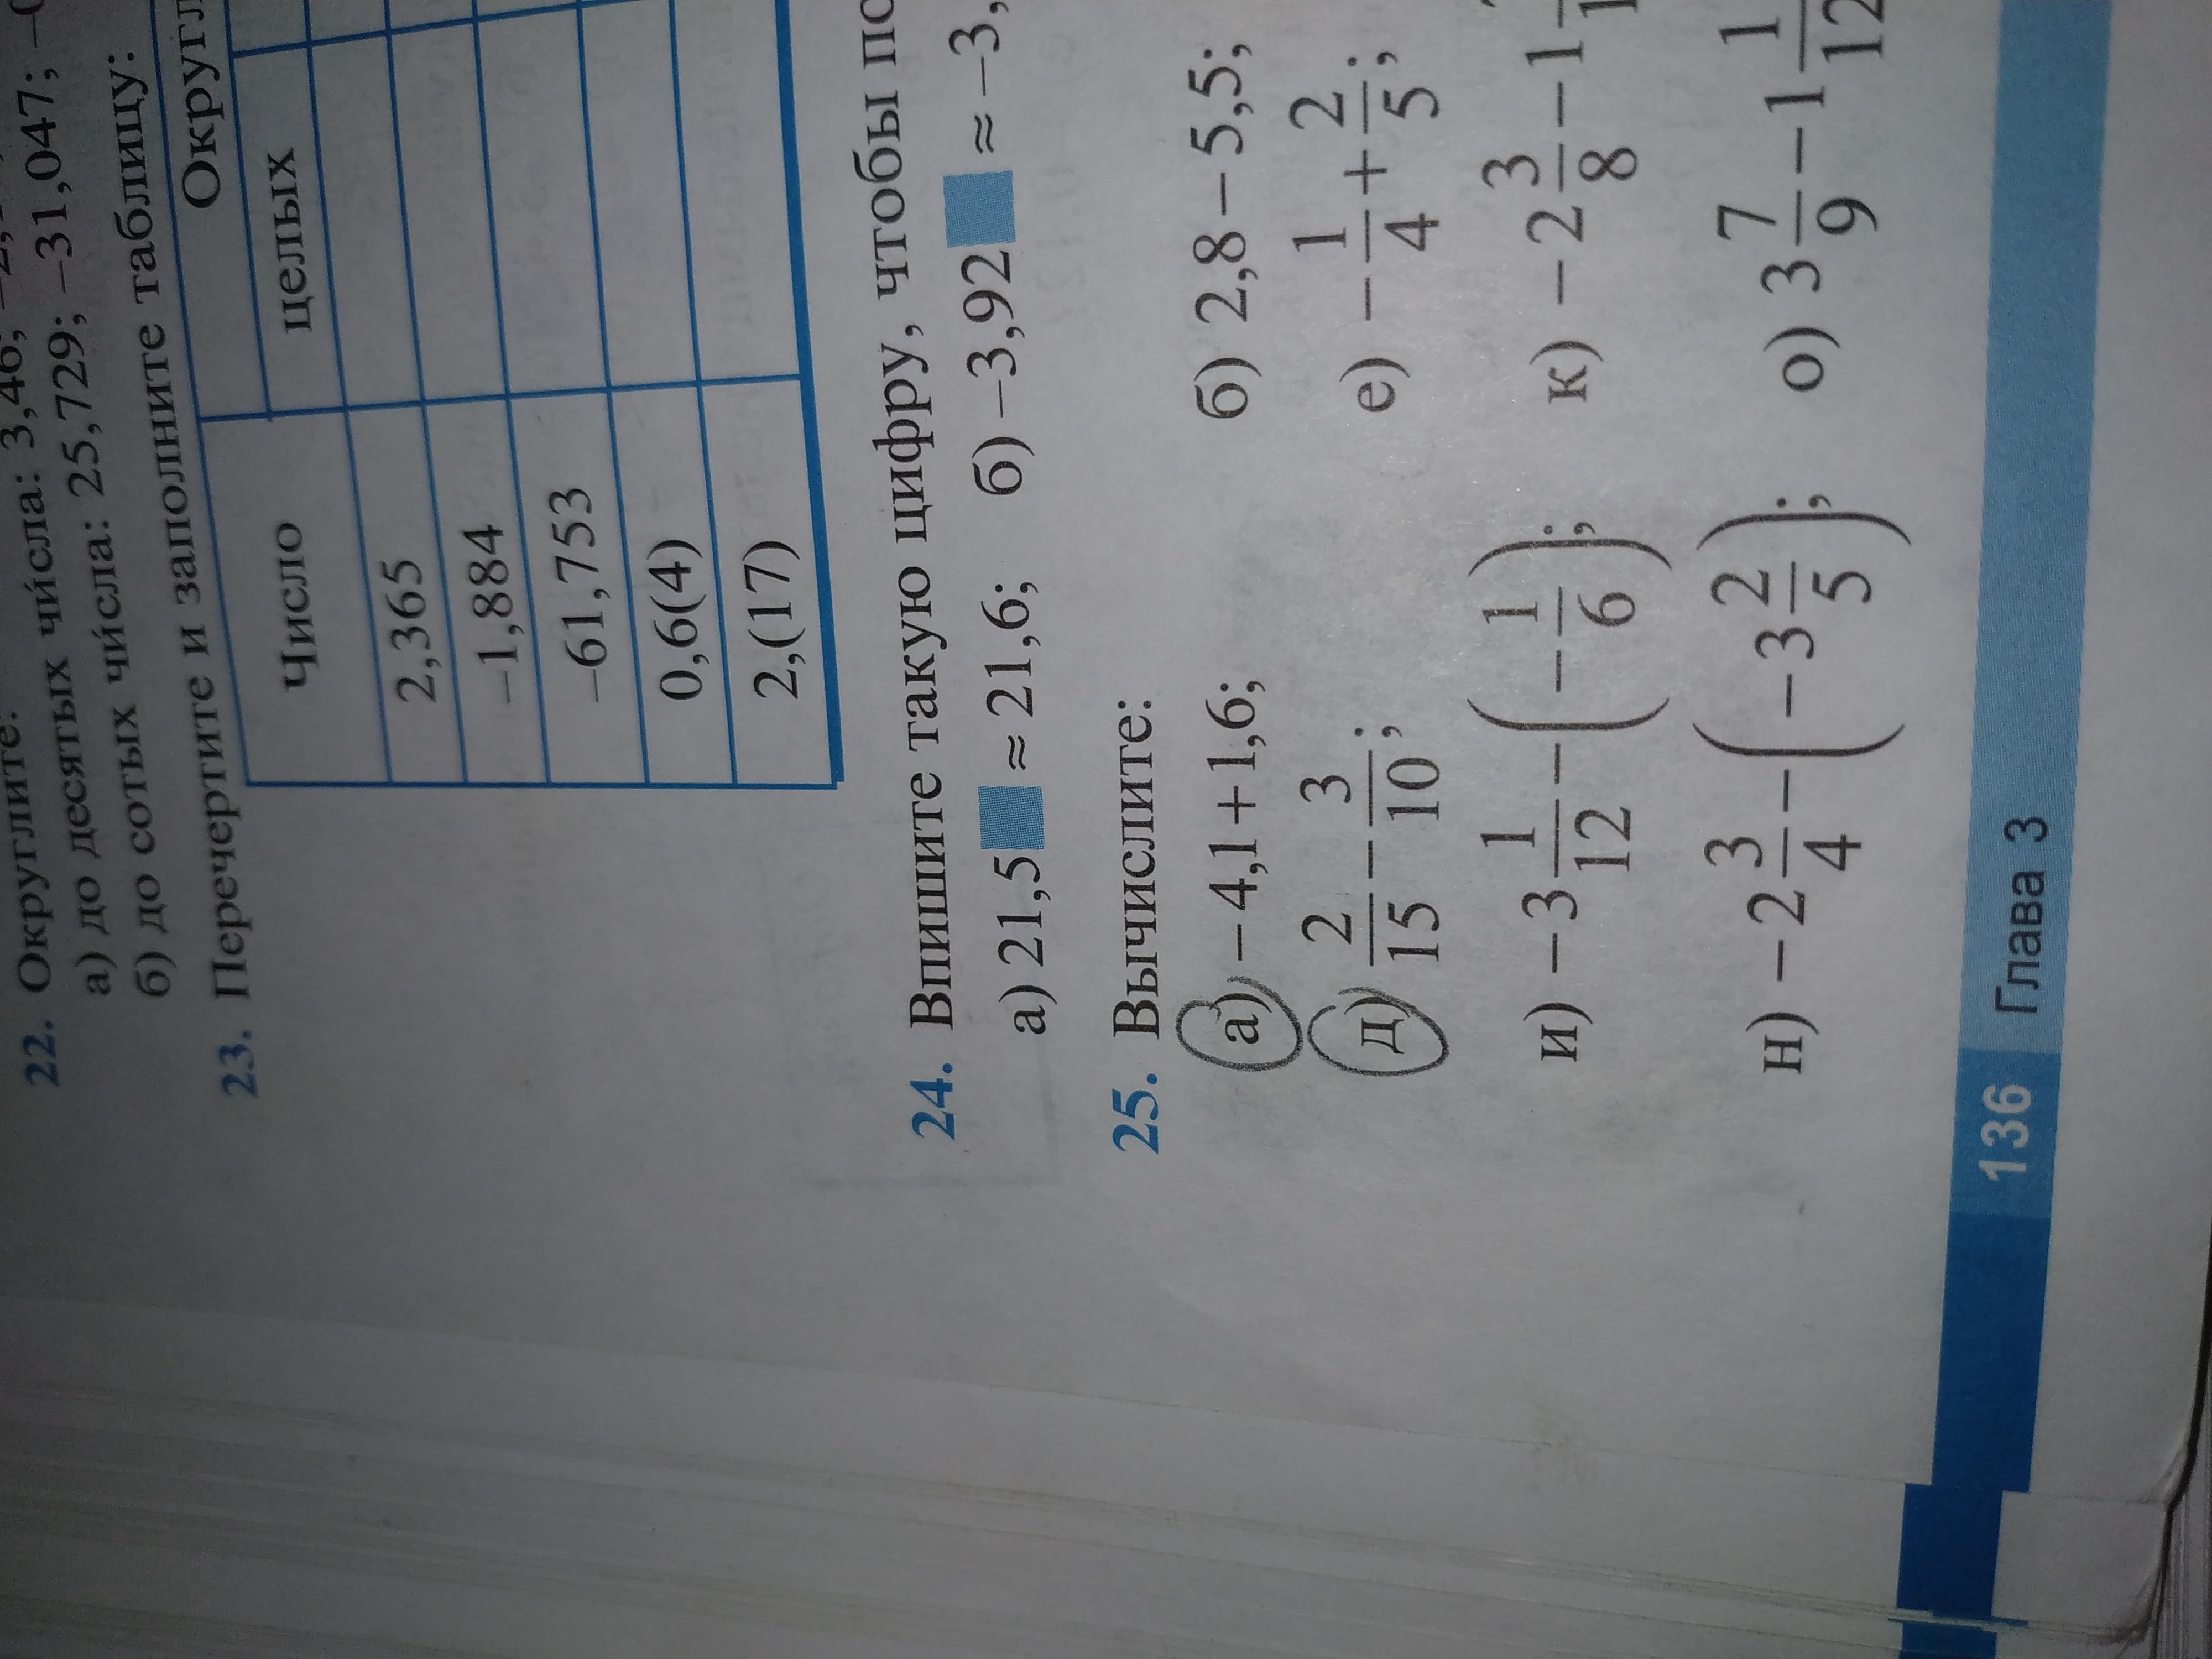 22. Округлите:
а) до десятых чи́сла: 3,46;
б) до сотых чи́сла: 25,729; −31,047;
23. Перечертите и заполните таблицу:
Число
целых
2,365
−1,884
−61,753
0,6(4)
2,(17)
24. Впишите такую цифру, чтобы
а) 21,5■ ≈ 21,6; б) −3,92■ ≈ −3,
25. Вычислите:
а) −4,1 + 1,6; б) 2,8 − 5,5;
д) 2/15 − 3/10; е) −1/4 + 2/5;
и) −3 1/12 − (−1/6); к) −2 3/8 − 1
н) −2 3/4 − (−3 2/5); о) 3 7/9 − 1 1/12
136 Глава 3